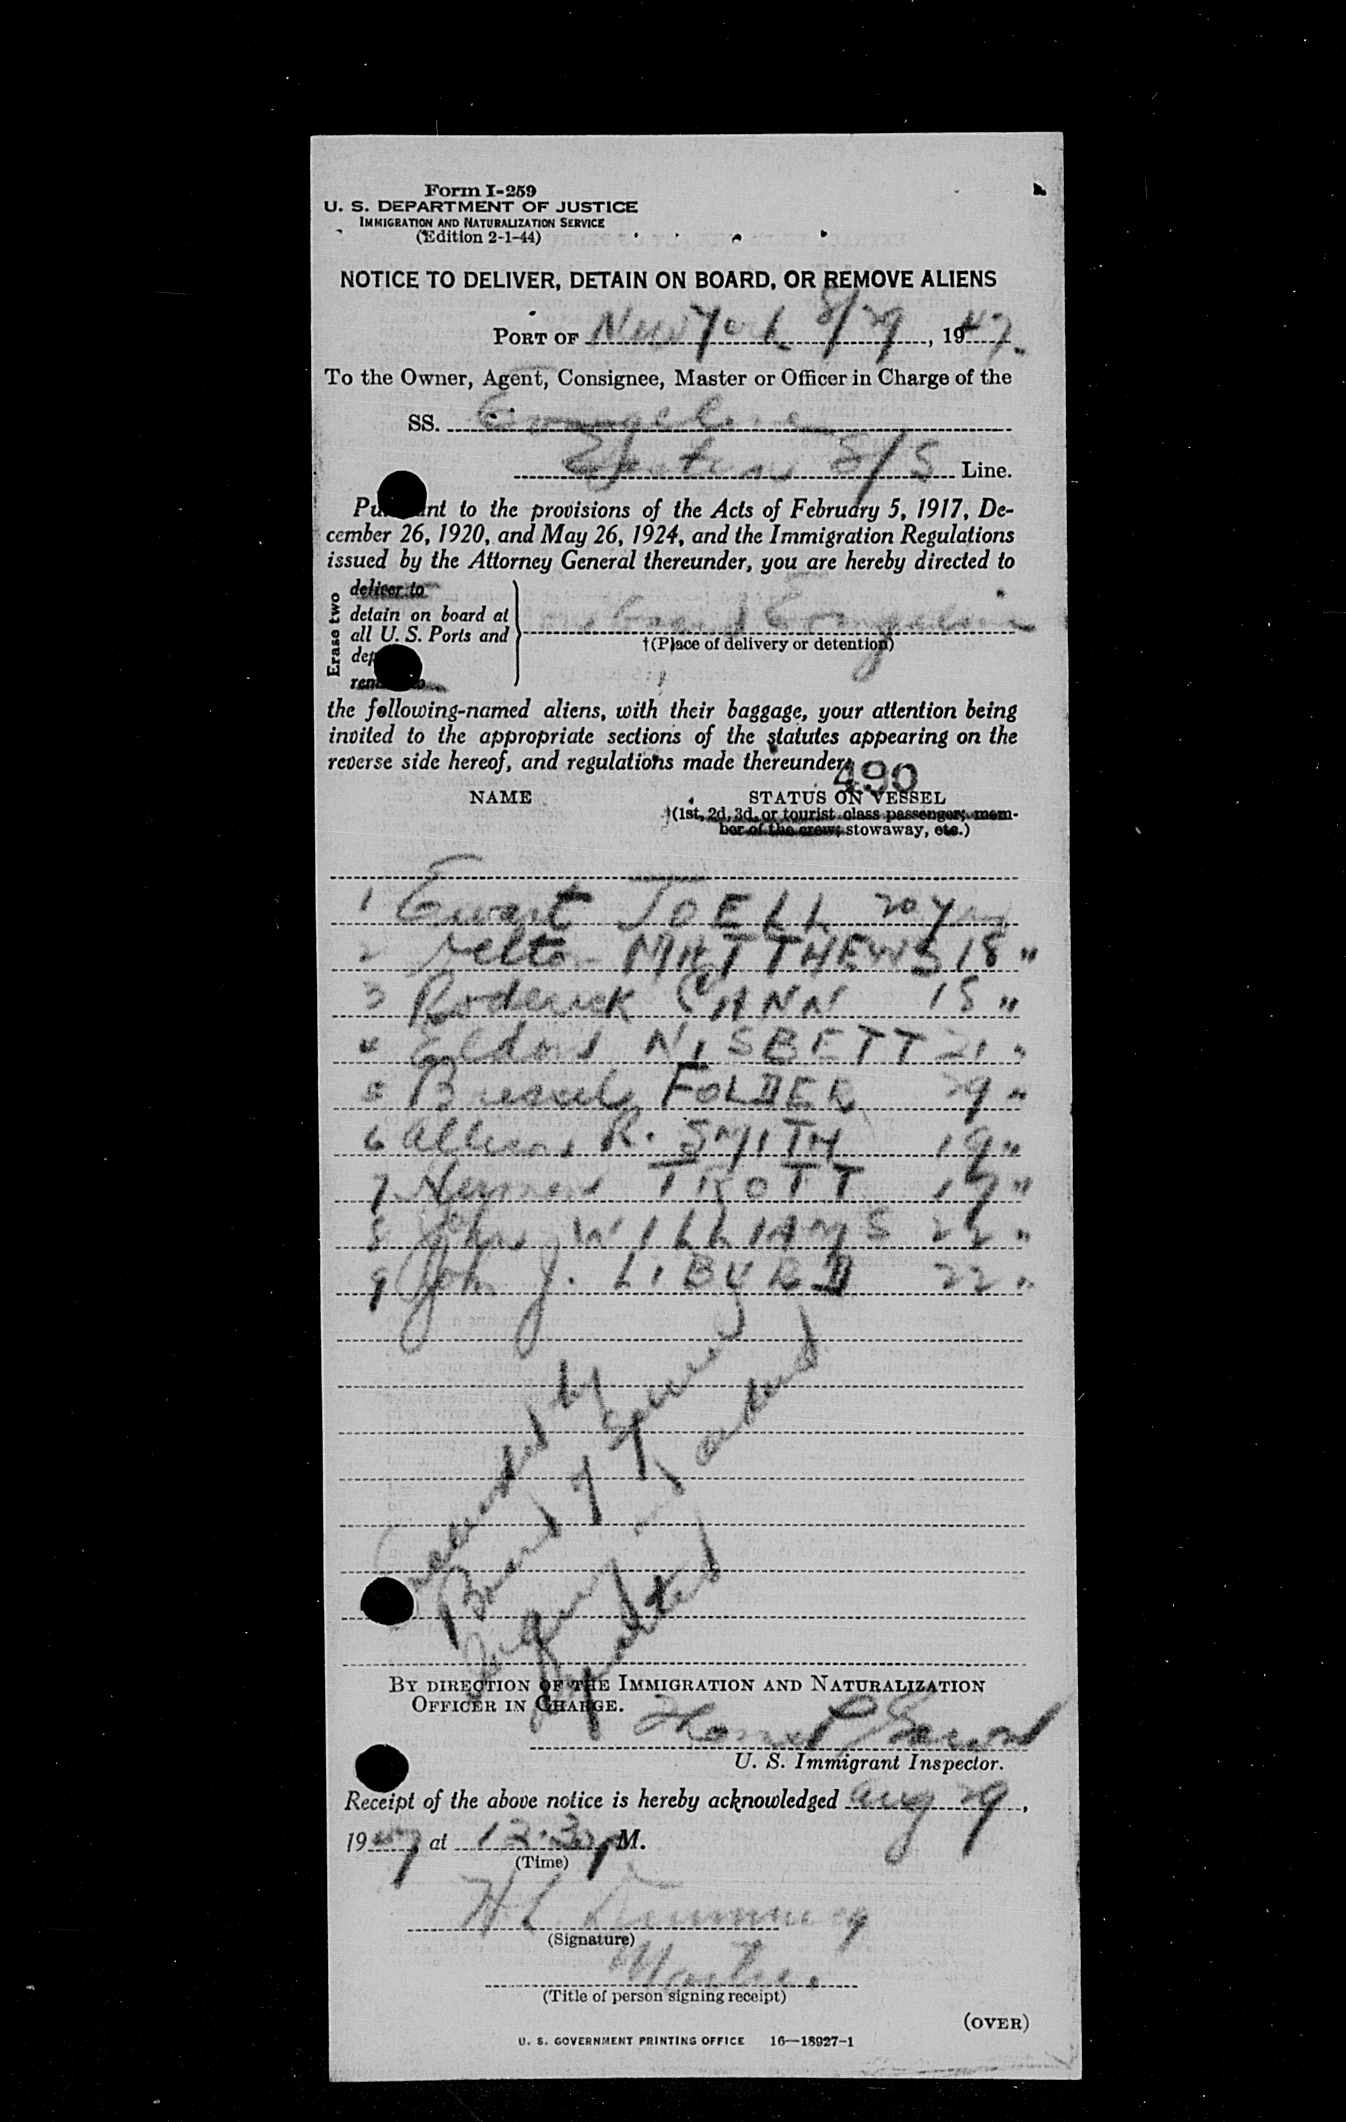 Form I-259
U. S. DEPARTMENT OF JUSTICE
IMMIGRATION AND NATURALIZATION SERVICE
(Edition 2-1-44)
NOTICE TO DELIVER, DETAIN ON BOARD, OR REMOVE ALIENS
PORT OF New York 8/29, 1947.
To the Owner, Agent, Consignee, Master or Officer in Charge of the
SS. Evangeline
Eastern S/S Line.
Pursuant to the provisions of the Acts of February 5, 1917, De-
cember 26, 1920, and May 26, 1924, and the Immigration Regulations
issued by the Attorney General thereunder, you are hereby directed to
Erase two
deliver to
detain on board at
all U. S. Ports and
dep
remove to
Evangeline
†(Place of delivery or detention)
the following-named aliens, with their baggage, your attention being
invited to the appropriate sections of the statutes appearing on the
reverse side hereof, and regulations made thereunder:
490
NAME STATUS ON VESSEL
†(1st, 2d, 3d, or tourist class passenger; mem-
ber of the crew; stowaway, etc.)
1 Ewart JOELL 20 yrs
2 MATTHEWS 18 "
3 Roderick CANN 18 "
4 Eldon NISBETT 21 "
5 FOLDER 29 "
6 R. SMITH 19 "
7 Herman TROTT 19 "
8 John WILLIAMS 22 "
9 John J. LIBURD 22 "
by
Board of Special
Inquiry and ordered
deported
BY DIRECTION OF THE IMMIGRATION AND NATURALIZATION
OFFICER IN CHARGE.
U. S. Immigrant Inspector.
Receipt of the above notice is hereby acknowledged Aug 29,
1947, at 12:30 P M.
(Time)
H L
(Signature)
Master
(Title of person signing receipt)
(OVER)
U. S. GOVERNMENT PRINTING OFFICE 16—18927-1